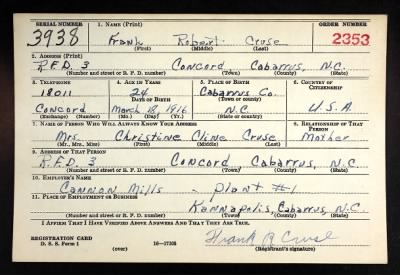 SERIAL NUMBER 1. NAME (Print) ORDER NUMBER
3938 Frank Robert Cruse 2353
(First) (Middle) (Last)
2. ADDRESS (Print)
R.F.D. 3 Concord, Cabarrus, N.C.
(Number and street or R. F. D. number) (Town) (County) (State)
3. TELEPHONE 4. AGE IN YEARS 5. PLACE OF BIRTH 6. COUNTRY OF CITIZENSHIP
18011 24 Cabarrus Co.
DATE OF BIRTH (Town or county)
Concord March 18, 1916 N.C. U.S.A
(Exchange) (Number) (Mo.) (Day) (Yr.) (State or country)
7. NAME OF PERSON WHO WILL ALWAYS KNOW YOUR ADDRESS 8. RELATIONSHIP OF THAT PERSON
Mrs. Christine Cline Cruse Mother
(Mr., Mrs., Miss) (First) (Middle) (Last)
9. ADDRESS OF THAT PERSON
R.F.D. 3 Concord Cabarrus, N.C
(Number and street or R. F. D. number) (Town) (County) (State)
10. EMPLOYER'S NAME
Cannon Mills - Plant #1
11. PLACE OF EMPLOYMENT OR BUSINESS
Kannapolis, Cabarrus, N.C
(Number and street or R. F. D. number) (Town) (County) (State)
I AFFIRM THAT I HAVE VERIFIED ABOVE ANSWERS AND THAT THEY ARE TRUE.
REGISTRATION CARD
D. S. S. Form 1 (over) 16-17105 Frank R Cruse
(Registrant's signature)